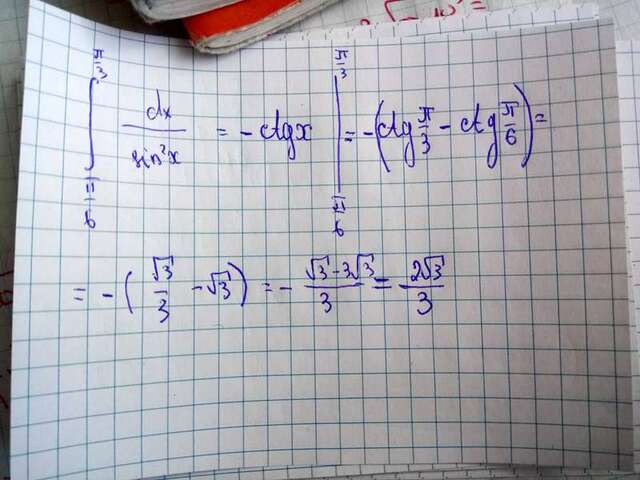 ∫_{π/6}^{π/3} dx/sin²x = - ctg x |_{π/6}^{π/3} = - (ctg π/3 - ctg π/6) =
= - (√3/3 - √3) = - (√3 - 3√3)/3 = 2√3/3